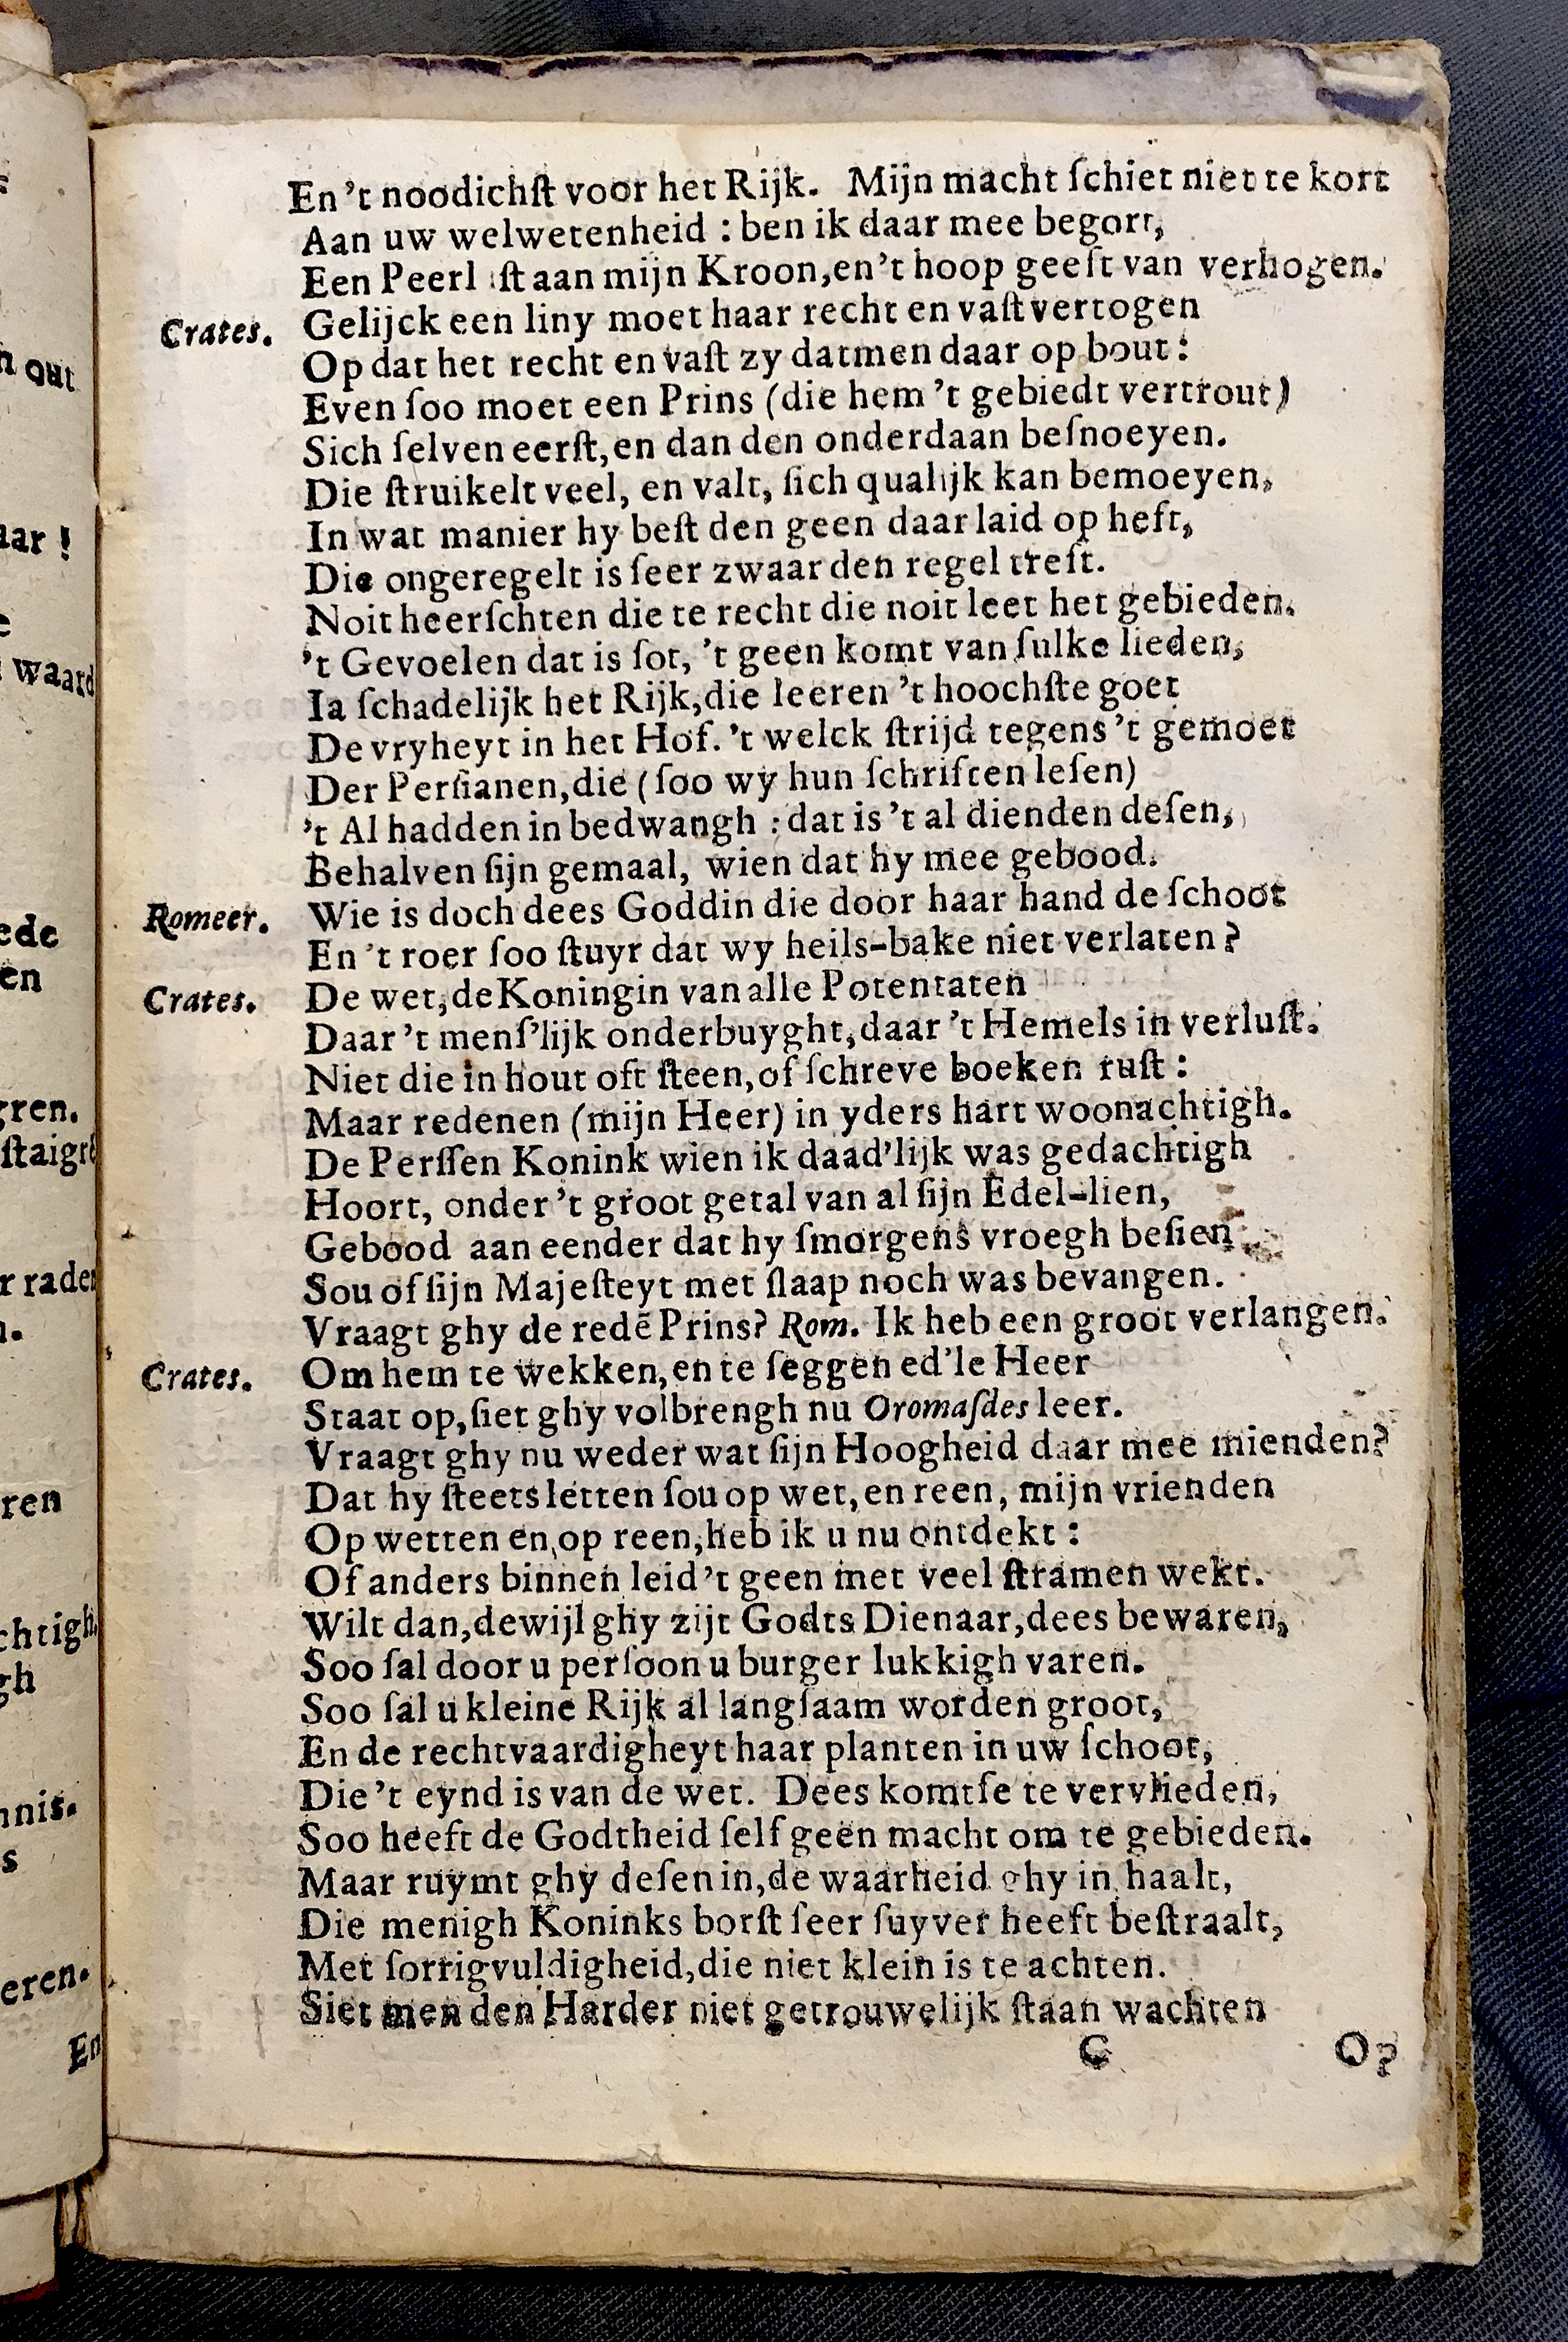 En 't noodichſt voor het Rijk. Mijn macht ſchiet niet te kort
Aan uw welwetenheid : ben ik daar mee begort,
Een Peerl iſt aan mijn Kroon, en 't hoop geeft van verhogen.
Crates. Gelijck een liny moet haar recht en vaſt vertogen
Op dat het recht en vaſt zy datmen daar op bout :
Even ſoo moet een Prins (die hem 't gebiedt vertrout)
Sich ſelven eerſt, en dan den onderdaan beſnoeyen.
Die ſtruikelt veel, en valt, ſich qualijk kan bemoeyen,
In wat manier hy beſt den geen daar laid op heft,
Die ongeregelt is ſeer zwaar den regel treft.
Noit heerſchten die te recht die noit leet het gebieden.
't Gevoelen dat is ſot, 't geen komt van ſulke lieden,
Ia ſchadelijk het Rijk, die leeren 't hoochſte goet
De vryheyt in het Hof. 't welck ſtrijd tegens 't gemoet
Der Perſianen, die (ſoo wy hun ſchriften leſen)
't Al hadden in bedwangh : dat is 't al dienden deſen,
Behalven ſijn gemaal, wien dat hy mee gebood.
Romeer. Wie is doch dees Goddin die door haar hand de ſchoot
En 't roer ſoo ſtuyr dat wy heils-bake niet verlaten?
Crates. De wet, de Koningin van alle Potentaten
Daar 't menſ'lijk onderbuyght, daar 't Hemels in verluſt.
Niet die in hout oft ſteen, of ſchreve boeken ruſt :
Maar redenen (mijn Heer) in yders hart woonachtigh.
De Perſſen Konink wien ik daad'lijk was gedachtigh
Hoort, onder 't groot getal van al ſijn Edel-lien,
Gebood aan eender dat hy ſmorgens vroegh beſien
Sou of ſijn Majeſteyt met ſlaap noch was bevangen.
Vraagt ghy de redē Prins? Rom. Ik heb een groot verlangen.
Crates. Om hem te wekken, en te ſeggen ed'le Heer
Staat op, ſiet ghy volbrengh nu Oromaſdes leer.
Vraagt ghy nu weder wat ſijn Hoogheid daar mee mienden?
Dat hy ſteets letten ſou op wet, en reen, mijn vrienden
Op wetten en op reen, heb ik u nu ontdekt :
Of anders binnen leid 't geen met veel ſtramen wekt.
Wilt dan, dewijl ghy zijt Godts Dienaar, dees bewaren,
Soo ſal door u perſoon u burger lukkigh varen.
Soo ſal u kleine Rijk al langſaam worden groot,
En de rechtvaardigheyt haar planten in uw ſchoot,
Die 't eynd is van de wet. Dees komtſe te vervlieden,
Soo heeft de Godtheid ſelf geen macht om te gebieden.
Maar ruymt ghy deſen in, de waarheid ghy in haalt,
Die menigh Koninks borſt ſeer ſuyver heeft beſtraalt,
Met ſorrigvuldigheid, die niet klein is te achten.
Siet men den Harder niet getrouwelijk ſtaan wachten
C Op